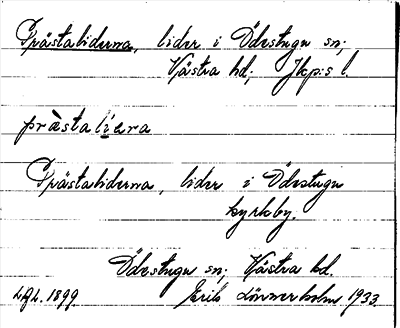 Prästaliderna, lider i Ödestugu sn;
Västra hd; Jkp:s l.
pràstalíɛra
Prästaliderna, lider i Ödestugu
kyrkby.
Ödestugu sn; Västra hd.
LGL. 1899. Erik Lönnerholm 1933.